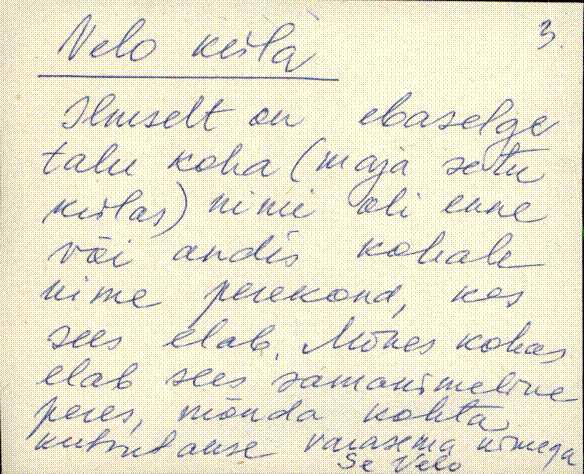 3.
Velo küla
Ilmselt on ebaselge
talu koha (maja setu
külas) nimi oli enne
või andis kohale
nime perekond, kes
sees elab. Mõnes kohas
elab sees samanimeline
peres, mõnda kohta
kutsutakse varasema nimega
Se Velo